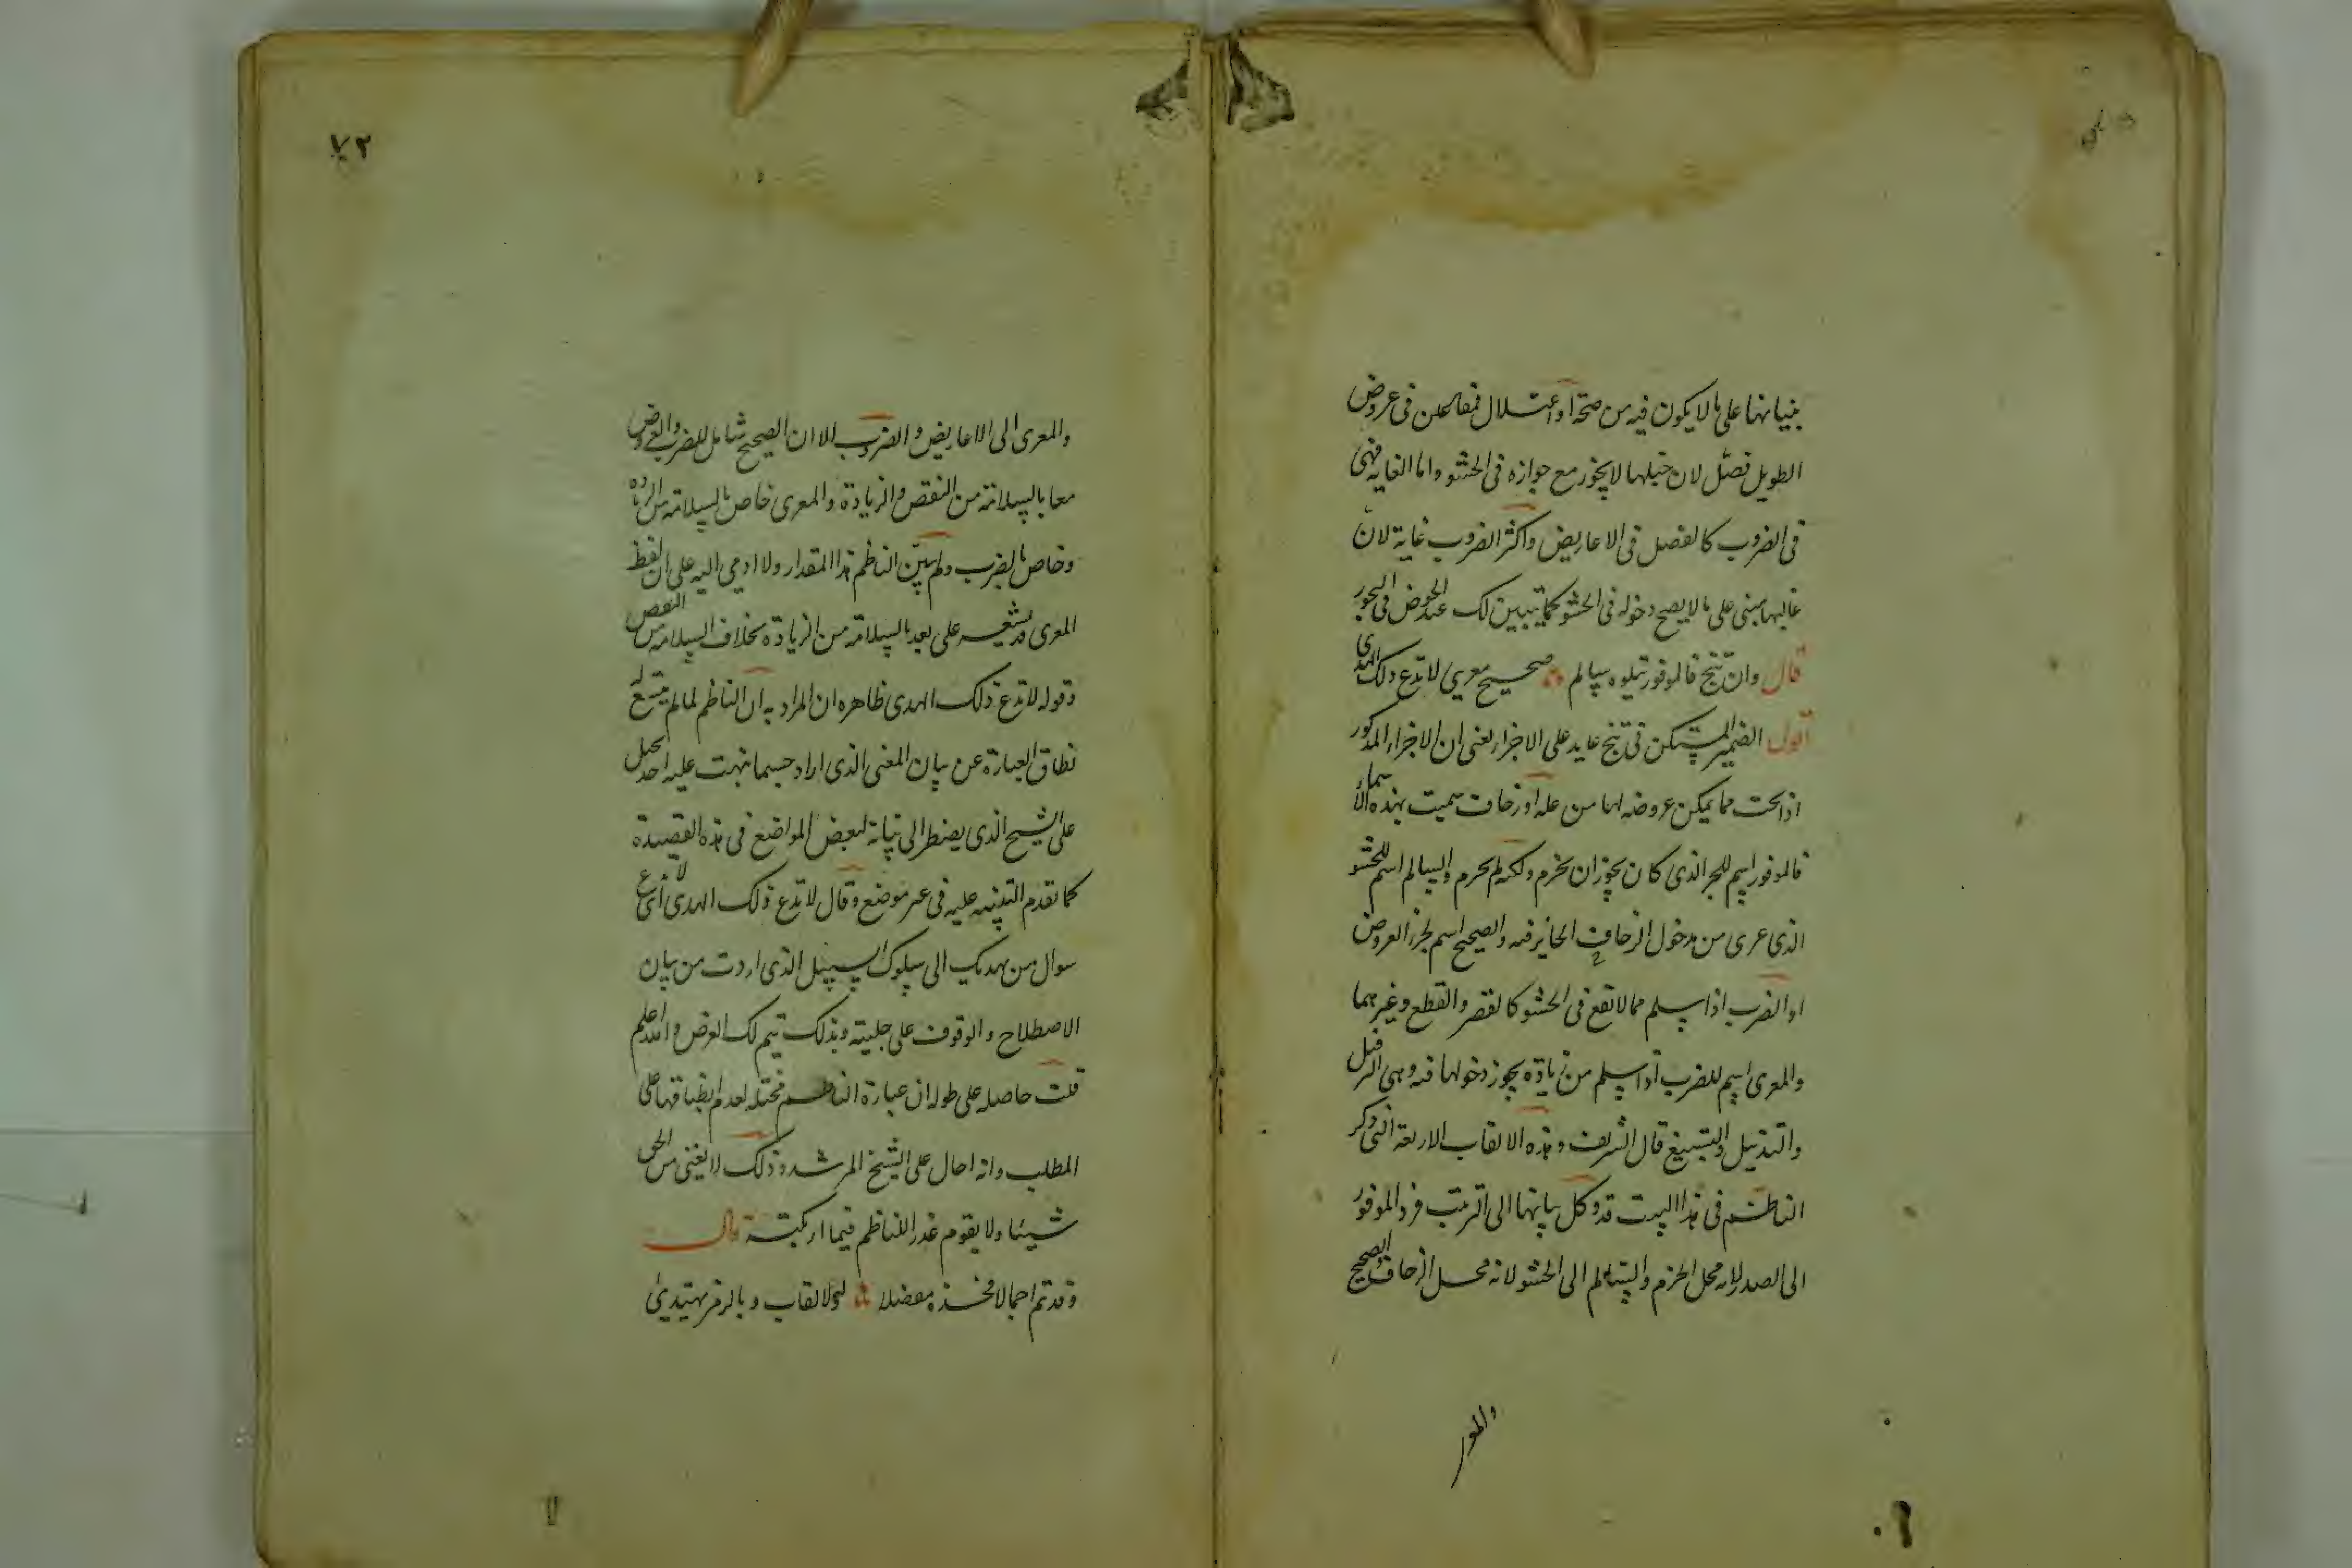 بنيانها على ما لا يكون فيه من صحة او اعتلال فمفاعلن فى عروض
الطويل فصل لان خبلها لا يجوز مع جوازه فى الحشو واما الغاية فهى
فى الضروب كالفصل فى الاعاريض واكثر الضروب غاية لان
غالبها مبنى على ما لا يصح دخوله فى الحشو كما يتبين لك عند الخوض فى البحور
قال وان تنج فالموفور يتلوه سالم صحيح معرى لا تدع ذلك الهدى
اقول الضمير المستكن فى تنج عايد على الاجزاء يعنى ان الاجزاء المذكور
اذا نجت مما يمكن عروضه لها من علة او زحاف سميت بهذه الاسماء
فالموفور اسم للجزء الذى كان يجوز ان يخرم ولكنه لم يخرم والسالم اسم للحشو
الذى عرى من دخول الزحاف الجايز فيه والصحيح اسم لجزء العروض
او الضرب اذا سلم مما لا يقع فى الحشو كالقصر والقطع وغيرهما
والمعرى اسم للضرب اذا سلم من زيادة يجوز دخولها فيه وهى الترفيل
والتذييل والتسبيغ قال الشريف وهذه الالقاب الاربعة التى ذكر
الناظم فى هذا البيت قد وكل بيانها الى الترتيب فرد الموفور
الى الصدر لانه محل الخرم والسالم الى الحشو لانه محل الزحاف والصحيح
٧٢
والمعرى الى الاعاريض والضروب الا ان الصحيح شامل للضرب والعروض
معا بالسلامة من النقص والزيادة والمعرى خاص بالسلامة من الزيادة
وخاص بالضرب ولم يبين الناظم هذا المقدار ولا اومى اليه على ان لفظ
المعرى قد يشعر على بعد بالسلامة من الزيادة بخلاف السلامة من النقص
وقوله لا تدع ذلك الهدى ظاهره ان المراد به ان الناظم لما لم يتسع له
نطاق العبارة عن بيان المعنى الذى اراد حسبما نبهت عليه احد يحيل
على الشيخ الذى يضطر الى بيانه لبعض المواضع فى هذه القصيدة
كما تقدم التنبيه عليه فى غير موضع وقال لا تدع ذلك الهدى اى لا تدع
سوال من يهديك الى سلوك السبيل الذى اردت من بيان
الاصطلاح والوقوف على جليته وبذلك يتم لك الغرض والله اعلم
قلت حاصله على طوله ان عبارة الناظم مختلة لعدم انطباقها على
المطلب وانه احال على الشيخ المرشد وذلك لا يغنى من الحق
شيئا ولا يقوم عذر للناظم فيما ارتكبته قال
وقد تم اجمالا فخذه مفصلا لها القاب وبالرمز يهتدى